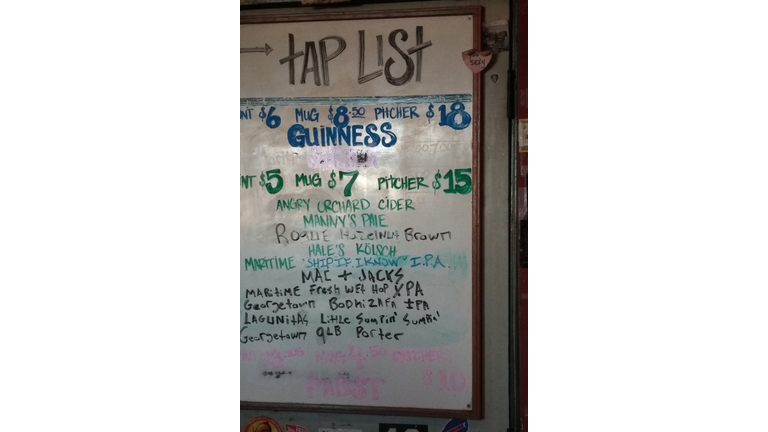 TAP LIST
NT $6 MUG $8.50 PITCHER $18
GUINNESS
NT $5 MUG $7 PITCHER $15
ANGRY ORCHARD CIDER
MANNY'S PALE
ROGUE Brown
HALE'S KÖLSCH
MARITIME "SHIP.I.F.I.KNOW" I.P.A.
MAC + JACKS
MARITIME Fresh WET HOP XPA
Georgetown BODHIZAFA IPA
LAGUNITAS Little Sumpin' Sumpin'
Georgetown 9LB Porter
MUG PITCHER
PABST $10